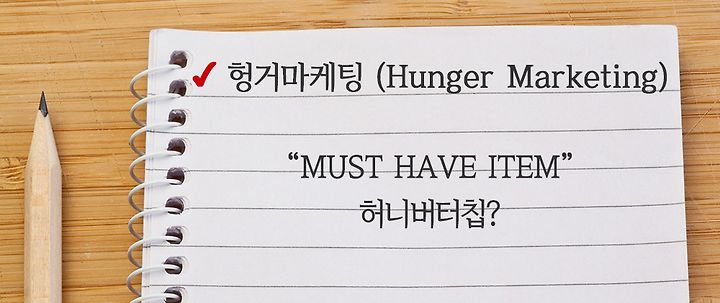 ✓ 헝거마케팅 (Hunger Marketing)
“MUST HAVE ITEM”
허니버터칩?